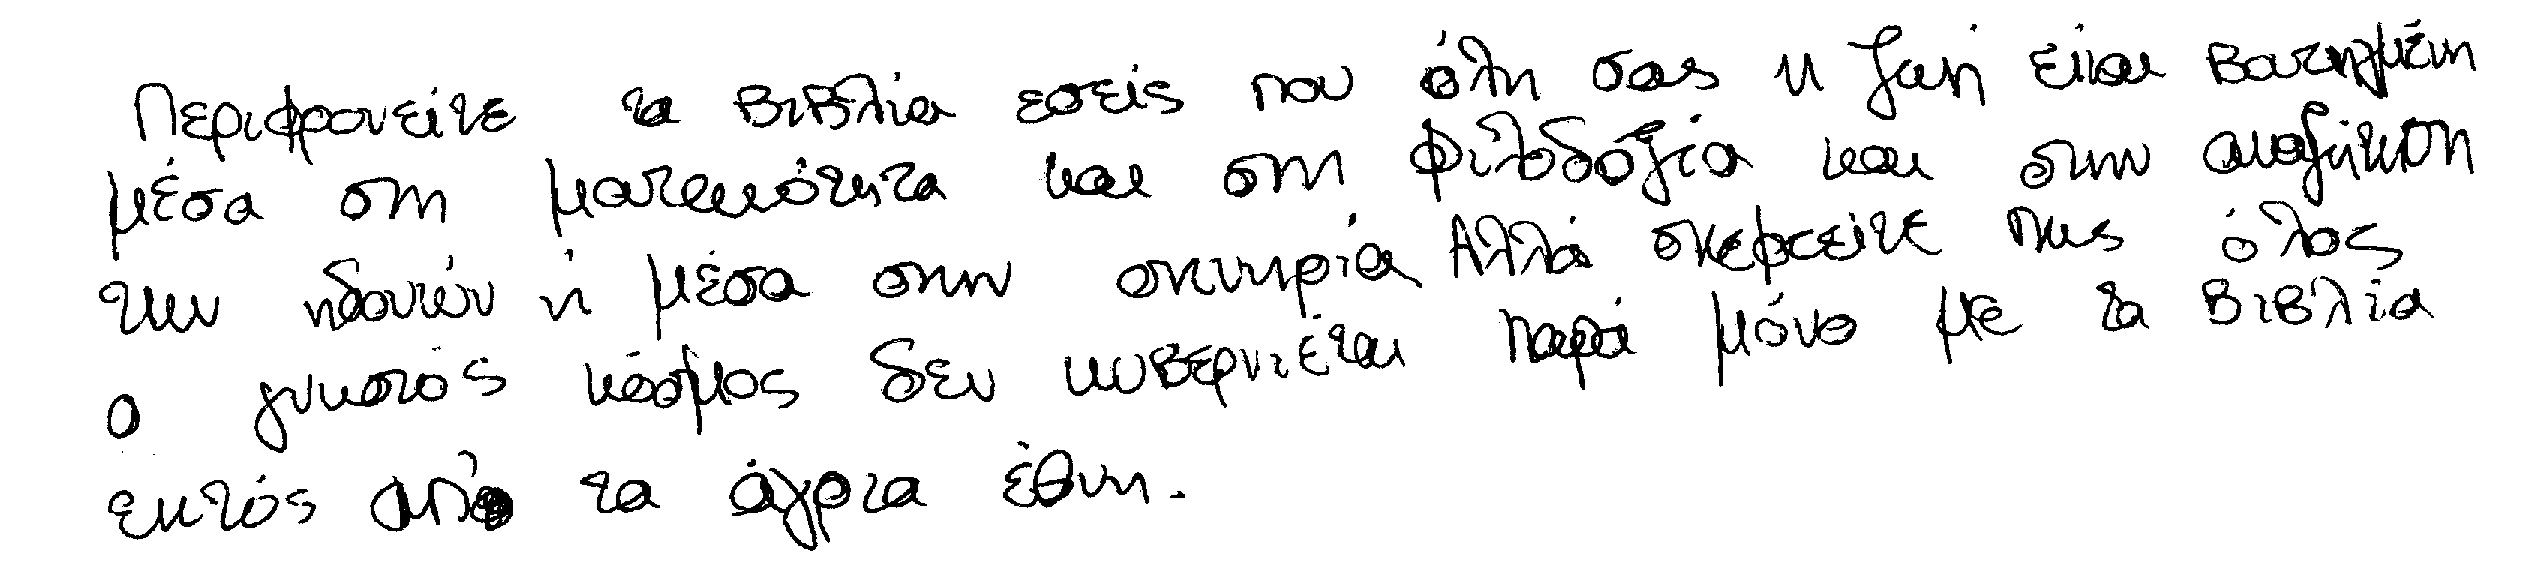 Περιφρονείτε τα βιβλία εσείς που όλη σας η ζωή είναι βουτηγμένη
μέσα στη ματαιότητα και στη φιλοδοξία και στην αναζήτηση
των ηδονών ή μέσα στην οκνηρία Αλλά σκεφτείτε πως όλος
ο γνωστός κόσμος δεν κυβερνιέται παρά μόνο με τα βιβλία
εκτός από τα άγρια έθνη.